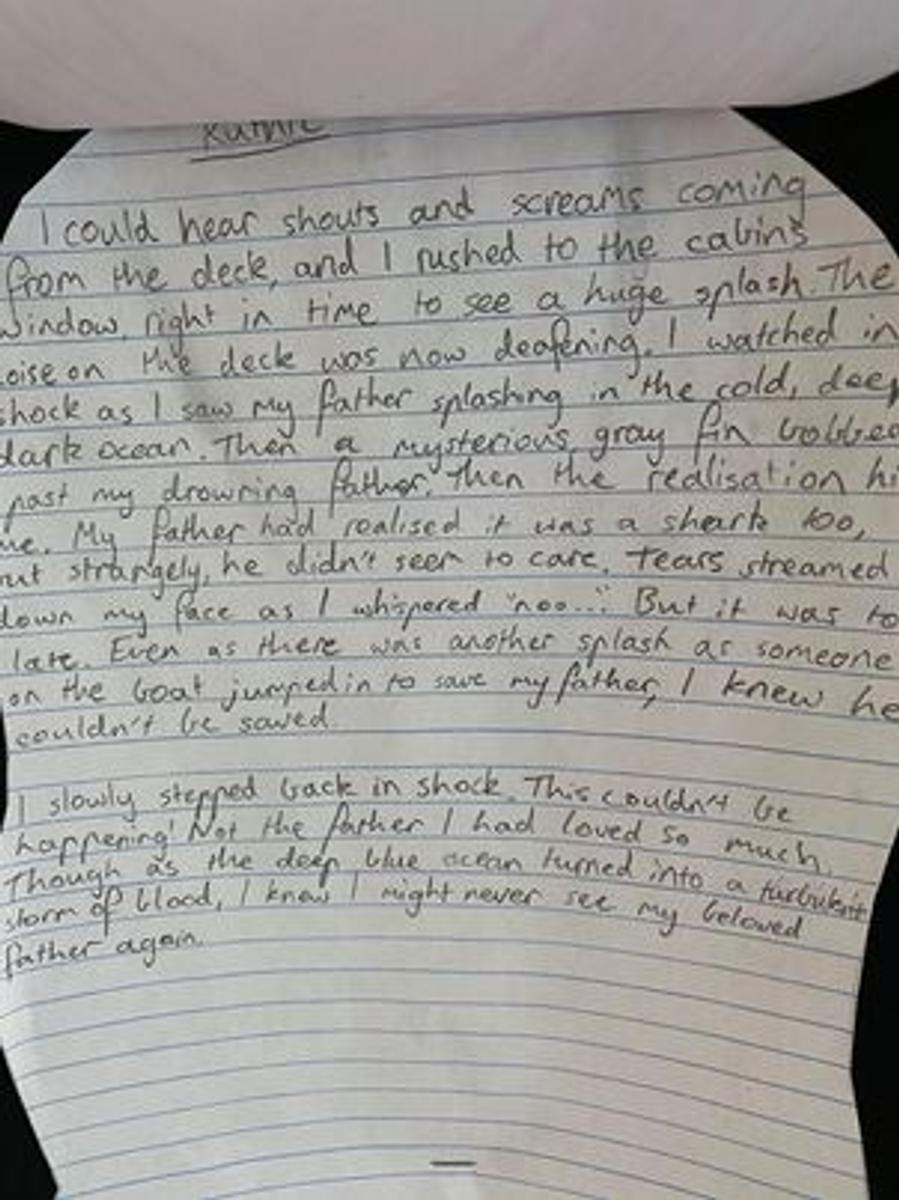 I could hear shouts and screams coming
from the deck, and I rushed to the cabin's
window, right in time to see a huge splash. The
oise on the deck was now deafening. I watched in
shock as I saw my father splashing in the cold, deep
dark ocean. Then a mysterious gray fin bobbed
past my drowning father. Then the realisation hi
me. My father had realised it was a shark too,
but strangely, he didn't seem to care. Tears streamed
down my face as I whispered "noo...". But it was to
late. Even as there was another splash as someone
on the boat jumped in to save my father, I knew he
couldn't be saved.
I slowly stepped back in shock. This couldn't be
happening! Not the father I had loved so much.
Though as the deep blue ocean turned into a
storm of blood, I knew I might never see my beloved
father again.